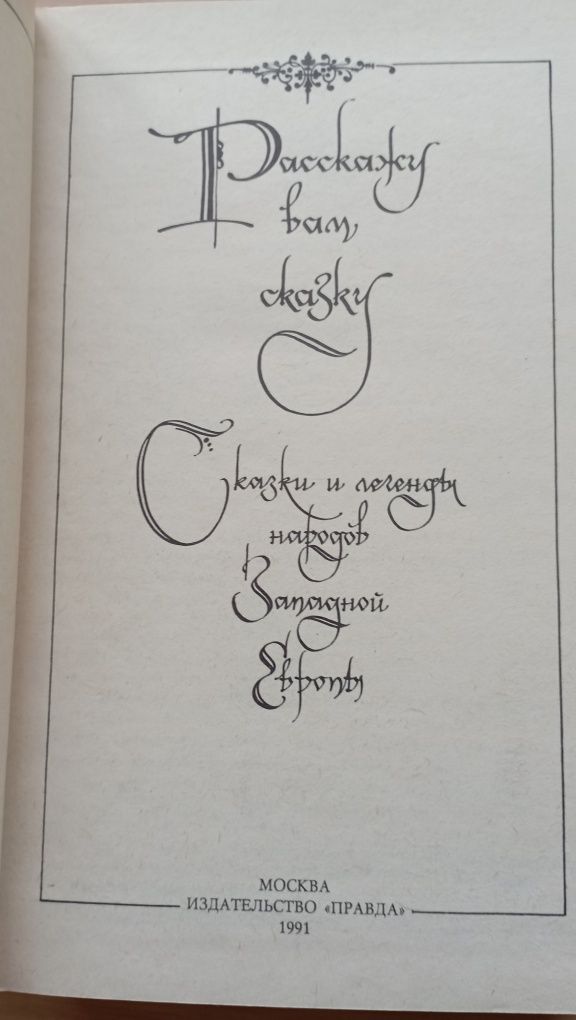 Расскажу
вам
сказку
Сказки и легенды
народов
Западной
Европы
МОСКВА
ИЗДАТЕЛЬСТВО «ПРАВДА»
1991